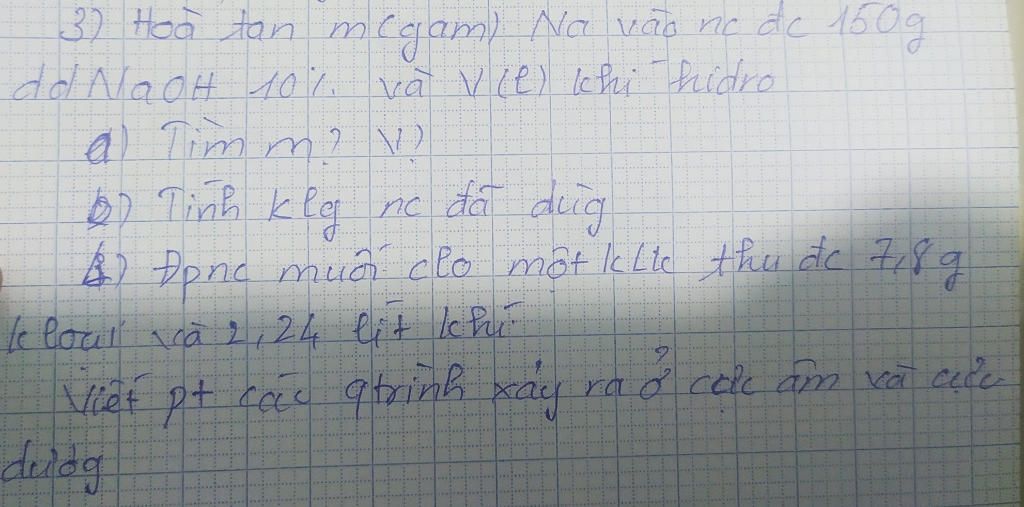 3) Hoà tan m(gam) Na vào nc đc 150g
dd NaOH 10%. và V(l) khí hidro
a) Tìm m? V?
b) Tính klg nc đã dùg
4) Đpnc muối clo một klk thu đc 7,8g
kloại và 2,24 lít khí
Viết pt các qtrình xảy ra ở cực âm và cực
dươg